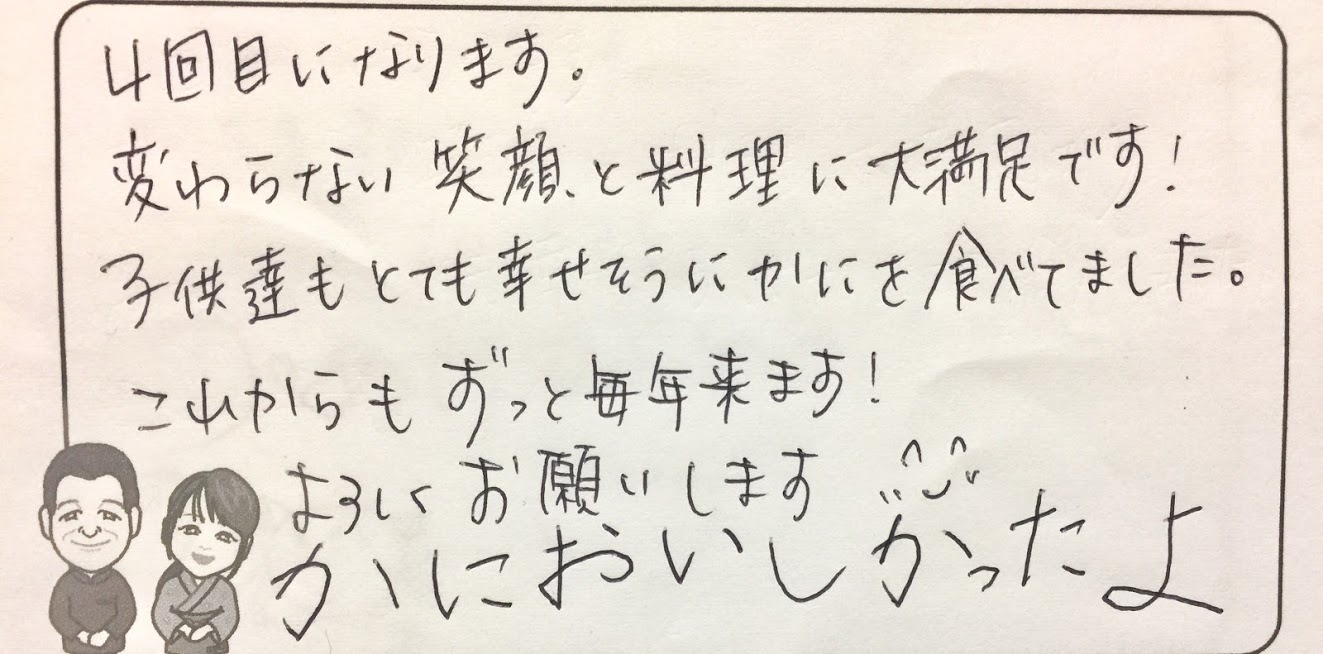 4回目になります。
変わらない笑顔、と料理に大満足です！
子供達もとても幸せそうにかにを食べてました。
これからもずっと毎年来ます！
よろしくお願いします
かにおいしかったよ